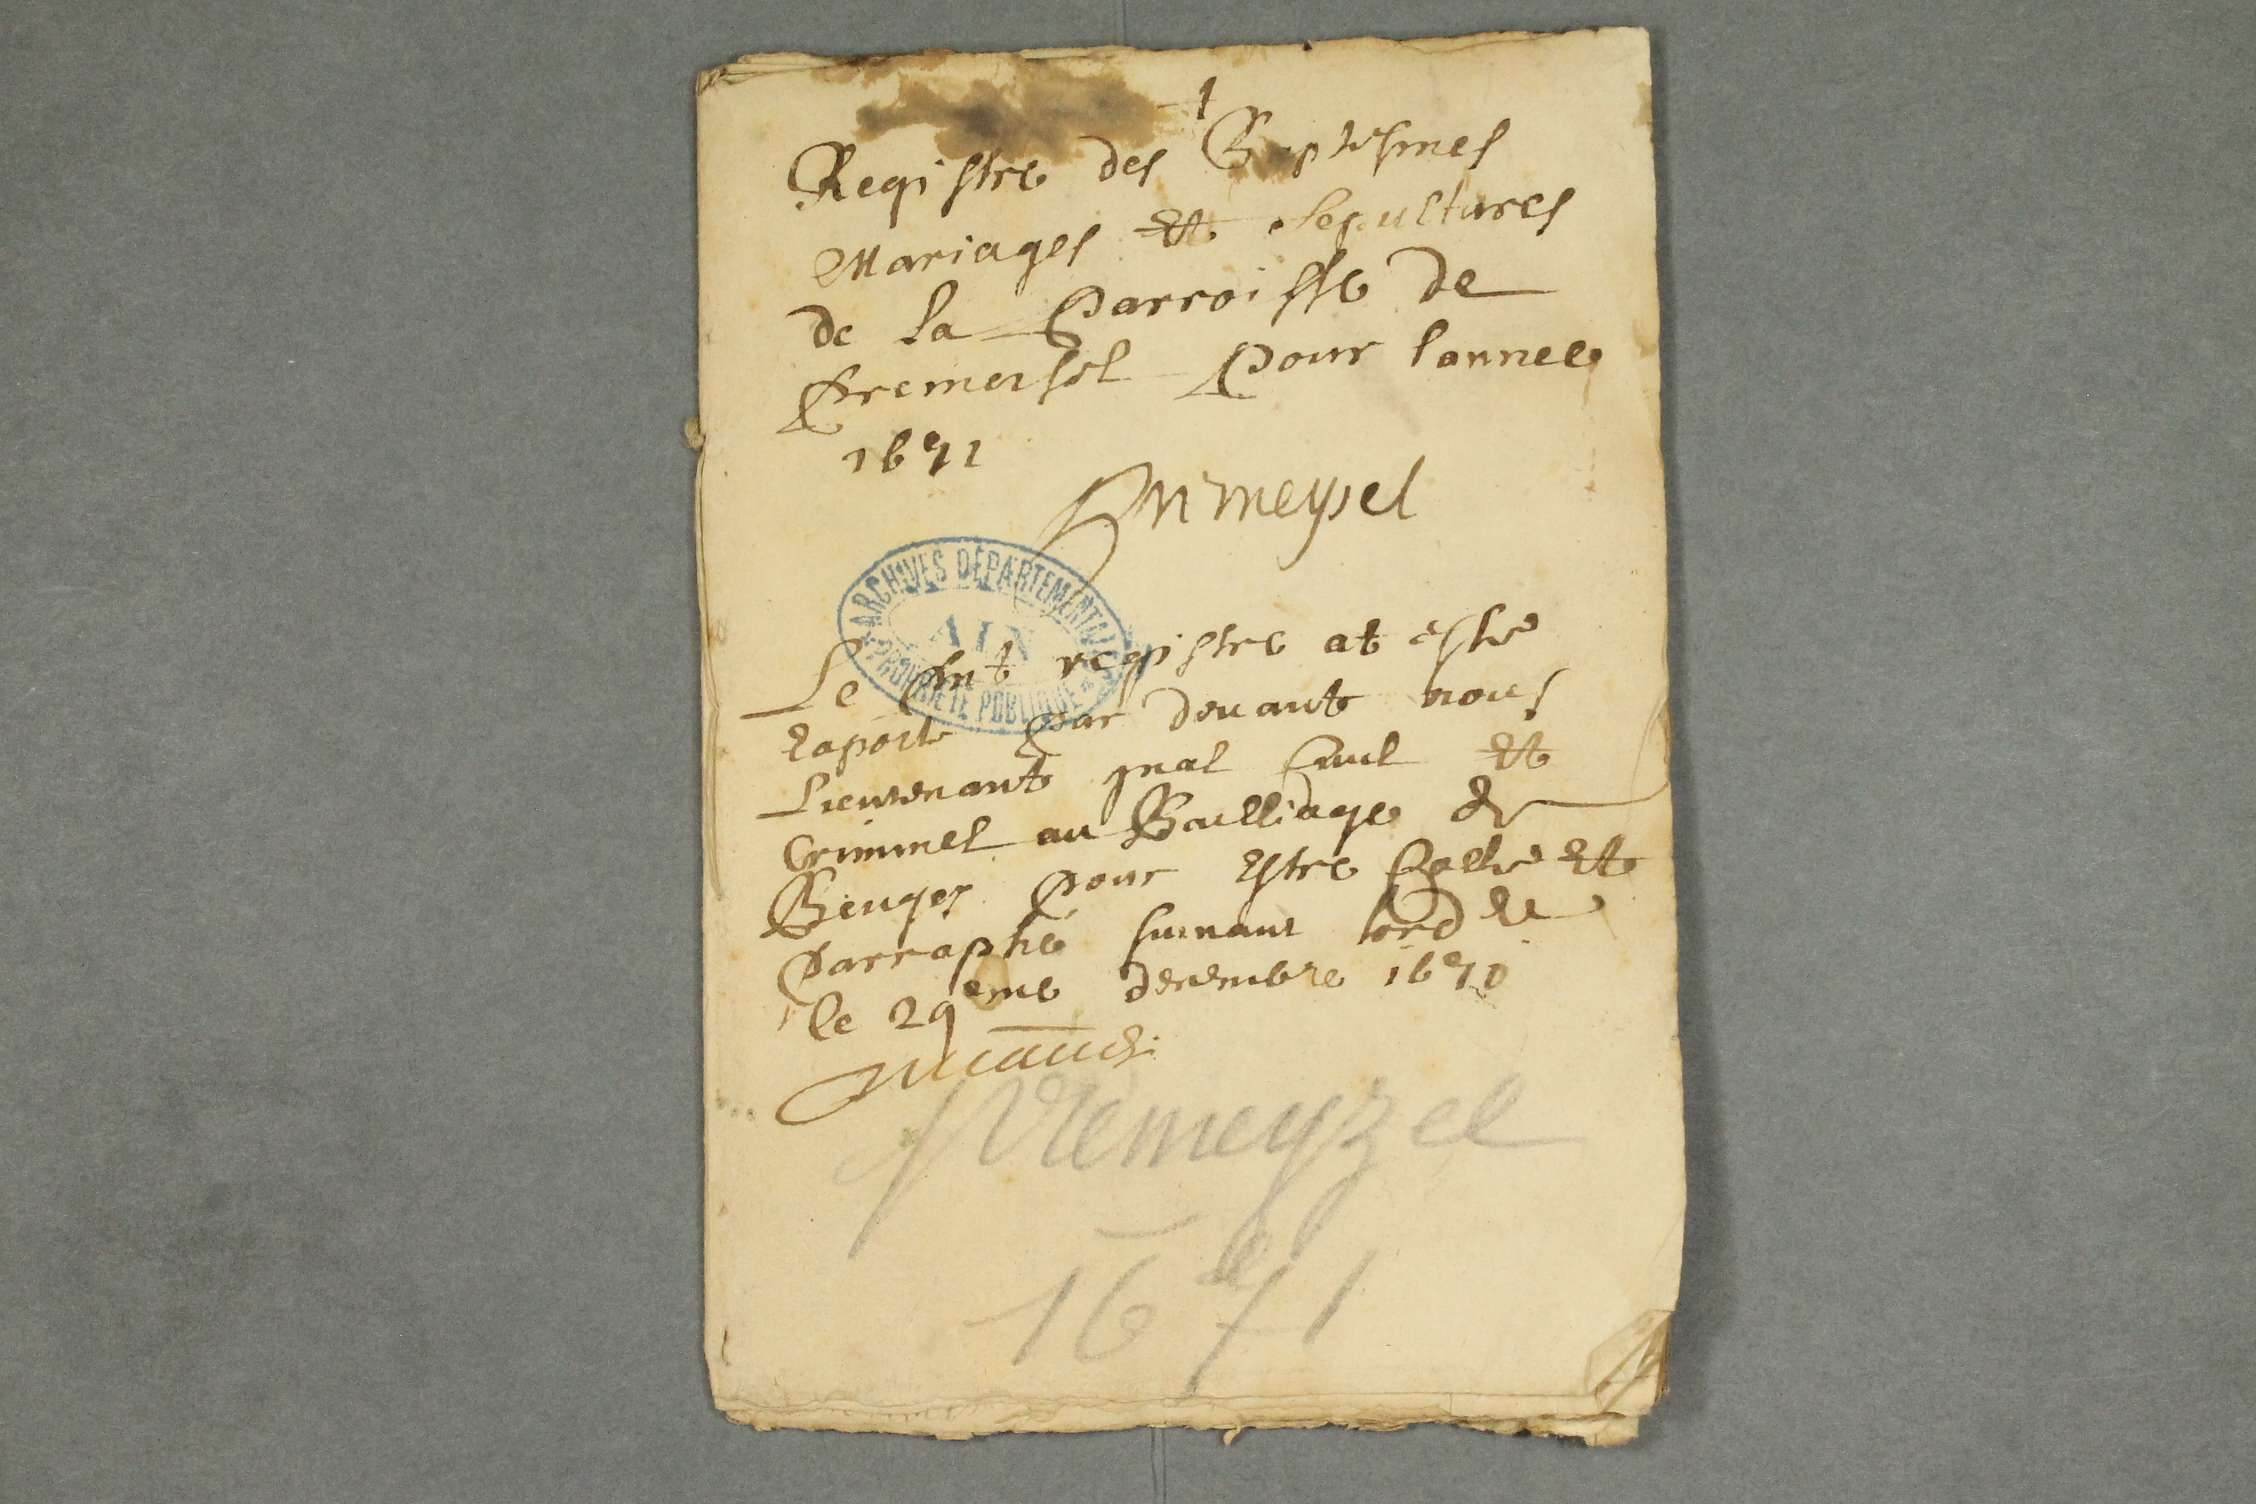 1
Registre des Baptesmes
Mariages Et Sepultures
de la Parroisse de
Premeisel Pour lannee
1671
Primeysel
ARCHIVES DÉPARTEMENTALES
AIN
PROPRIÉTÉ PUBLIQUE
Le pnt registre at esté
Raporté par deuant nous
Lieutenant gnal Ciuil Et
Criminel au Bailliage de
Beugey pour Estre Cotté Et
Parraphé suiuant lord ce
le 29eme decembre 1670
Premeyzel
1671